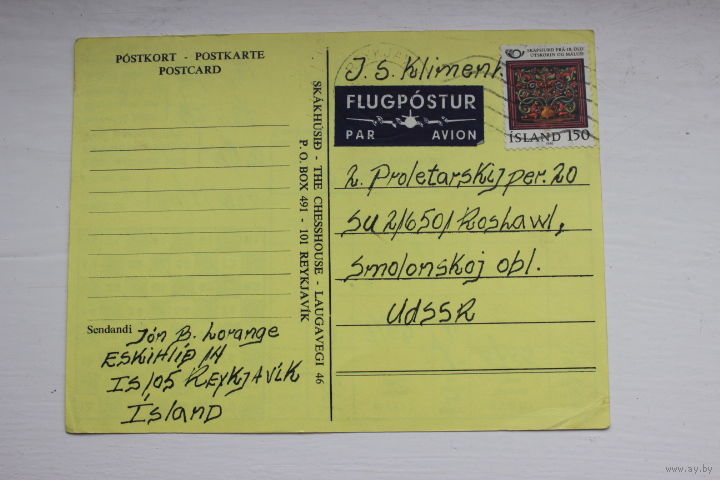 PÓSTKORT - POSTKARTE
POSTCARD
SKÁKHÚSIÐ - THE CHESSHOUSE - LAUGAVEGI 46
P. O. BOX 491 - 101 REYKJAVÍK
Sendandi Jón B. Lorange
ESKIHLÍÐ 14
IS 105 REYKJAVÍK
Ísland
J. S. Kliment.
FLUGPÓSTUR
PAR AVION
SKAPSHURÐ FRÁ 18. ÖLD
ÚTSKORIN OG MÁLUÐ
ÍSLAND 150
2. Proletarskij per. 20
SU 216501 Roshawl,
Smolonskoj obl.
UdSSR
www.ay.by